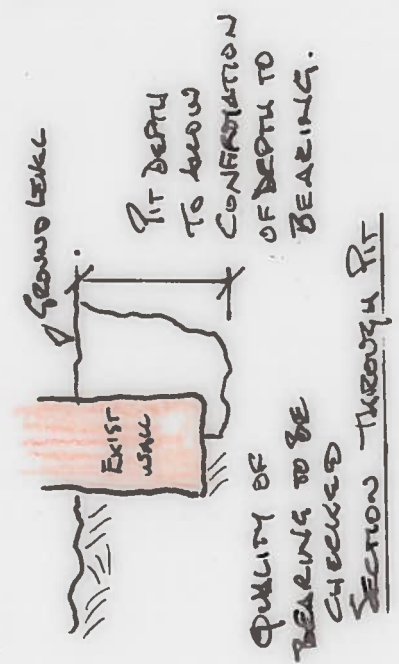 GROUND LEVEL
PIT DEPTH
TO ALLOW
CONFIRMATION
OF DEPTH TO
BEARING.
EXIST
WALL
QUALITY OF
BEARING TO BE
CHECKED
SECTION THROUGH PIT